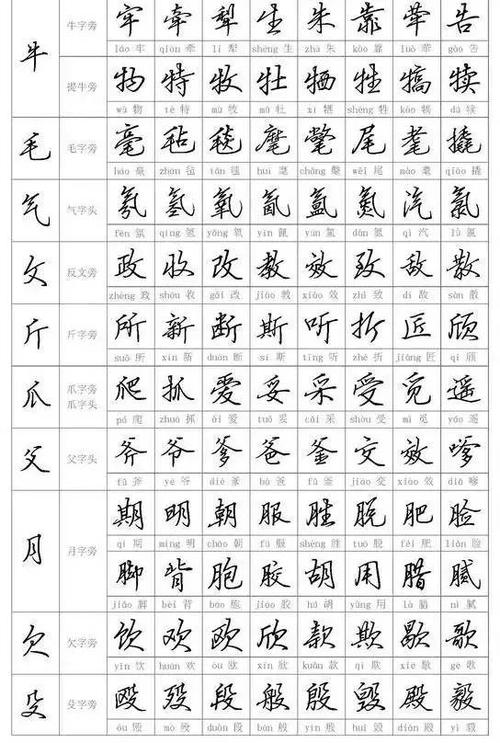 牛 牛字旁 牢 牵 犁 生 朱 靠 荦 告
láo 牢 qiān 牵 lí 犁 shēng 生 zhū 朱 kào 靠 luò 荦 gào 告
提牛旁 物 特 牧 牡 牺 牲 犒 犊
wù 物 tè 特 mù 牧 mǔ 牡 xī 牺 shēng 牲 kào 犒 dú 犊
毛 毛字旁 毫 毡 毯 麾 氅 尾 耄 撬
háo 毫 zhān 毡 tǎn 毯 huī 麾 chǎng 氅 wěi 尾 mào 耄 qiào 撬
气 气字头 氛 氢 氧 氤 氲 氮 汽 氯
fēn 氛 qīng 氢 yǎng 氧 yīn 氤 yūn 氲 dàn 氮 qì 汽 lǜ 氯
攵 反文旁 政 收 改 教 效 致 敌 散
zhèng 政 shōu 收 gǎi 改 jiào 教 xiào 效 zhì 致 dí 敌 sàn 散
斤 斤字旁 所 新 断 斯 听 折 匠 颀
suǒ 所 xīn 新 duàn 断 sī 斯 tīng 听 zhé 折 jiàng 匠 qí 颀
爪 爪字旁 爪字头 爬 抓 爱 妥 采 受 觅 遥
pá 爬 zhuā 抓 ài 爱 tuǒ 妥 cǎi 采 shòu 受 mì 觅 yáo 遥
父 父字头 斧 爷 爹 爸 釜 交 效 嗲
fǔ 斧 yé 爷 diē 爹 bà 爸 fǔ 釜 jiāo 交 xiào 效 diǎ 嗲
月 月字旁 期 明 朝 服 胜 脱 肥 脸
qī 期 míng 明 cháo 朝 fú 服 shèng 胜 tuō 脱 féi 肥 liǎn 脸
脚 背 胞 胶 胡 用 腊 腻
jiǎo 脚 bèi 背 bāo 胞 jiāo 胶 hú 胡 yòng 用 là 腊 nì 腻
欠 欠字旁 饮 欢 欧 欣 款 欺 歇 歌
yǐn 饮 huān 欢 ōu 欧 xīn 欣 kuǎn 款 qī 欺 xiē 歇 gē 歌
殳 殳字旁 殴 殁 段 般 殷 毁 殿 毅
ōu 殴 mò 殁 duàn 段 bān 般 yīn 殷 huǐ 毁 diàn 殿 yì 毅